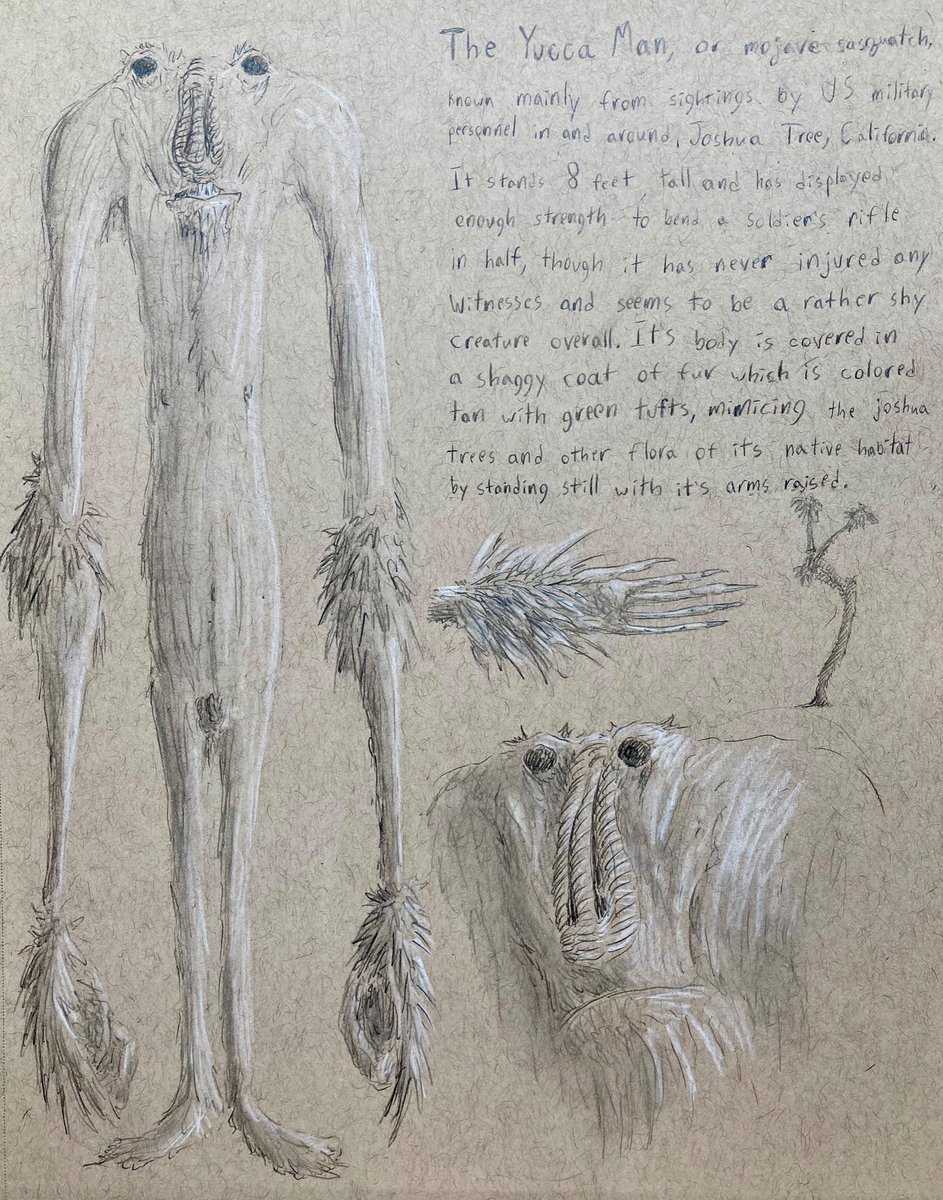 The Yucca Man, or mojave sasquatch,
known mainly from sightings by US military
personnel in and around, Joshua Tree, California.
It stands 8 feet tall and has displayed
enough strength to bend a soldier's rifle
in half, though it has never injured any
witnesses and seems to be a rather shy
creature overall. It's body is covered in
a shaggy coat of fur which is colored
tan with green tufts, mimicing the joshua
trees and other flora of its native habitat
by standing still with it's arms raised.